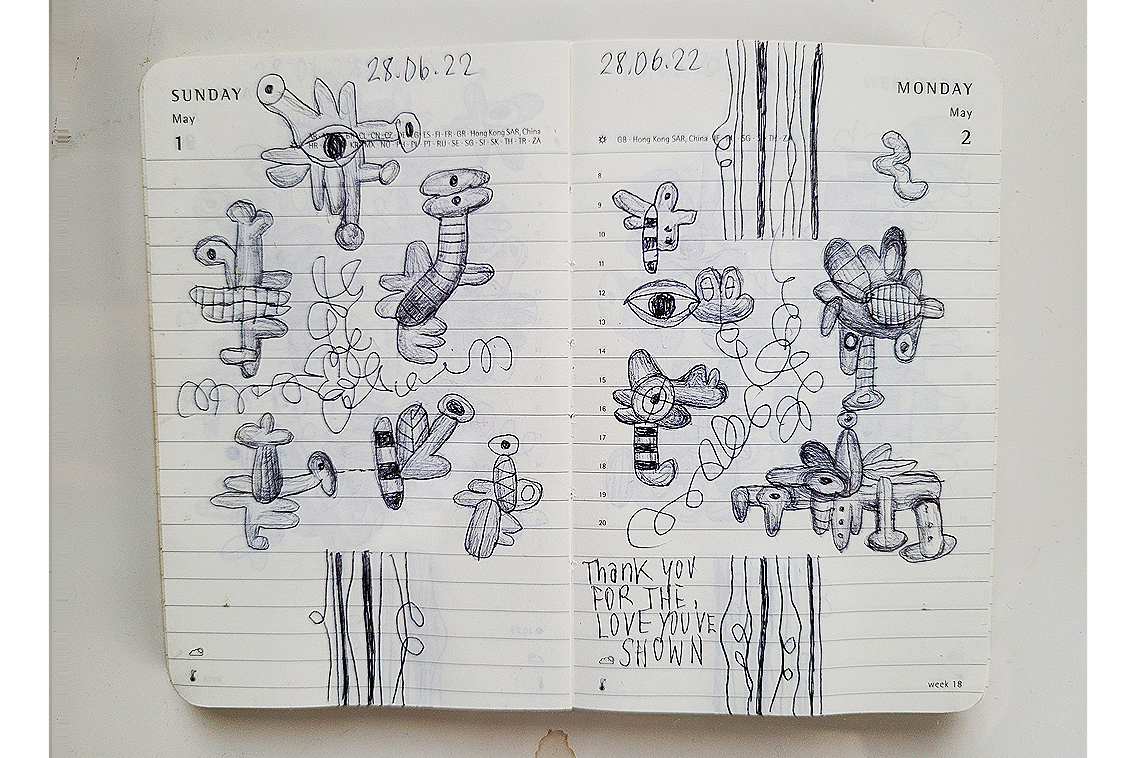 28.06.22
SUNDAY
May
1
ES · FI · FR · GR · Hong Kong SAR, China
PT · RU · SE · SG · SI · SK · TH · TR · ZA
28.06.22
MONDAY
May
2
GB · Hong Kong SAR, China
SG
TH · ZA
8
9
10
11
12
13
14
15
16
17
18
19
20
Thank YOU
FOR THE,
LOVE YOU'VE
SHOWN
week 18